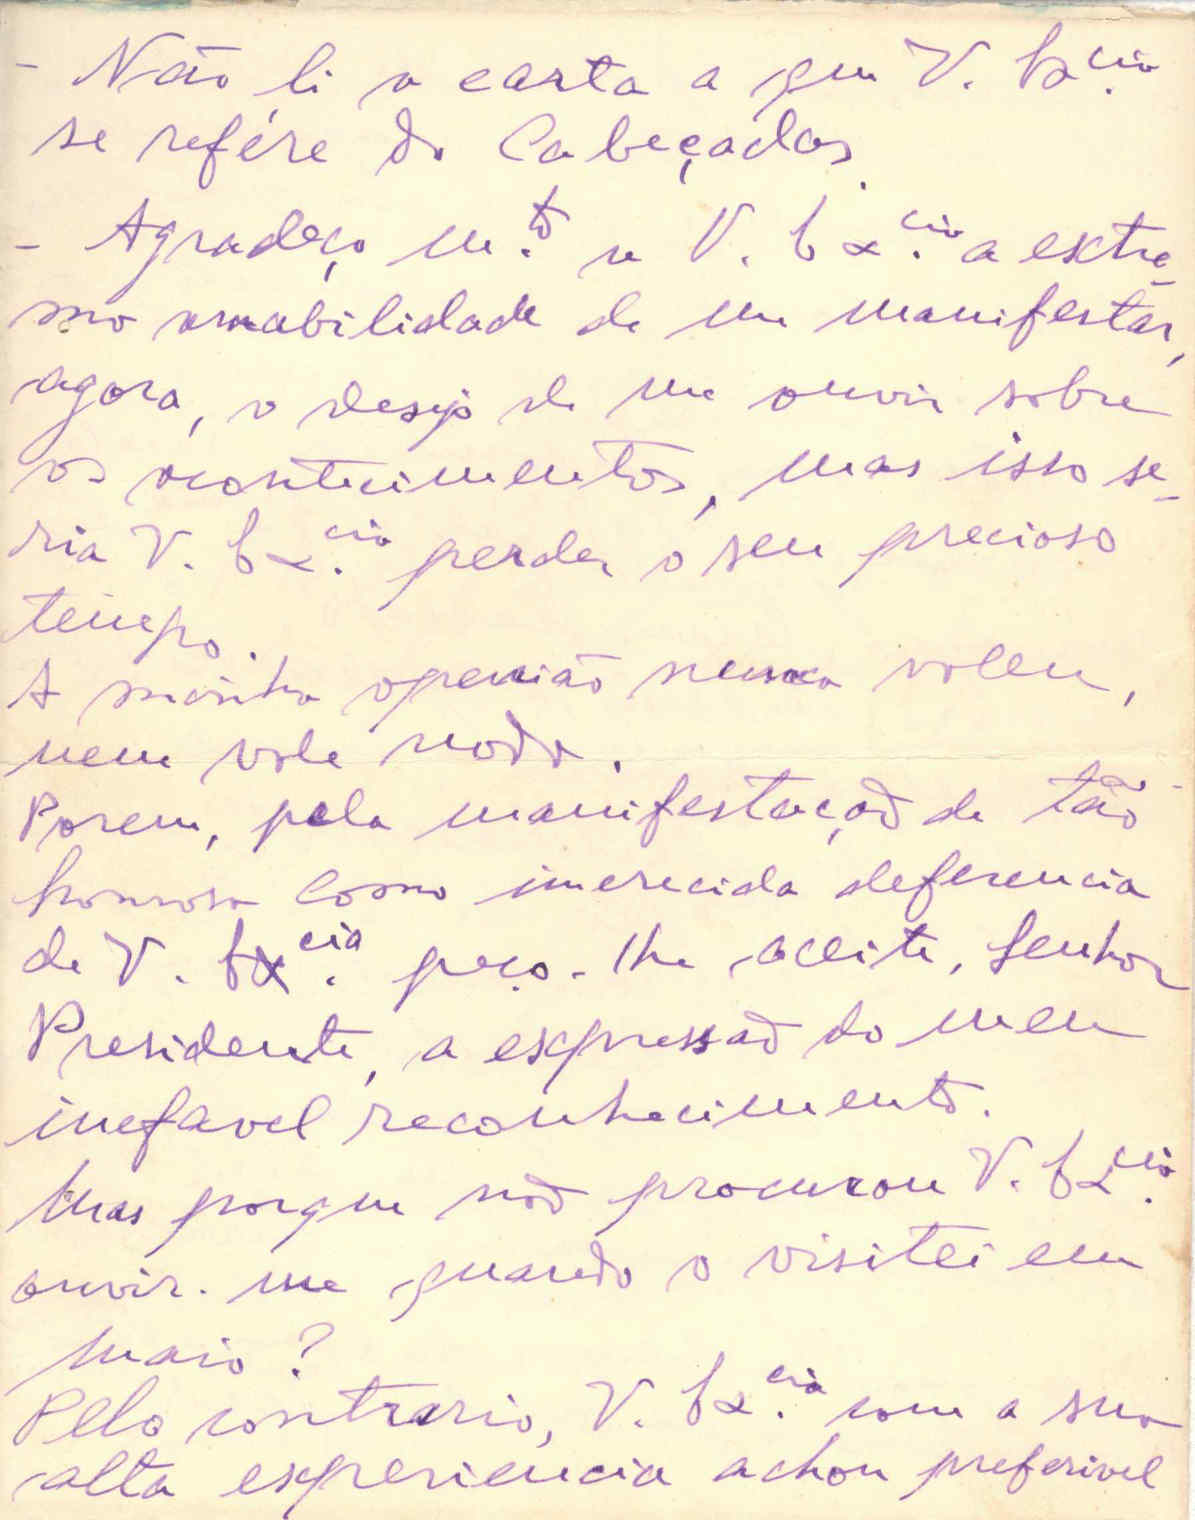 - Não li a carta a que V. Ex.cia
se refére do Cabeçadas.
- Agradeço m.to a V. Ex.cia a extre-
ma amabilidade de me manifestar,
agora, o desejo de me ouvir sobre
os acontecimentos, mas isso se-
ria V. Ex.cia perder o seu precioso
tempo.
A minha openião nunca valeu,
nem vale nada.
Porem, pela manifestação de tão
honrosa como imerecida deferencia
de V. Ex.cia peço-lhe aceite, Senhor
Presidente, a expressão do meu
inefavel reconhecimento.
Mas porque não procurou V. Ex.cia
ouvir-me quando o visitei em
maio?
Pelo contrario, V. Ex.cia com a sua
alta experiencia achou preferivel